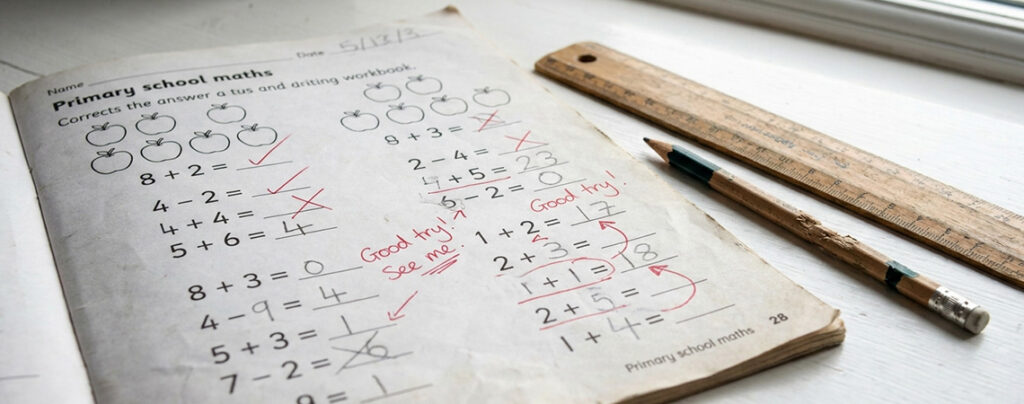 Name
Date 5/13/3
Primary school maths
Corrects the answer a tus and driting workbook.
8 + 2 =
4 − 2 =
4 + 4 =
5 + 6 = 4
8 + 3 = 0
4 − 9 = 4
5 + 3 = 1
7 − 2 =
9 = 1
8 + 3 =
2 − 4 =
+ 5 = 23
6 − 2 = 0
Good try!
see me!
Good try!
1 + 2 = 17
2 + 3 =
+ 1 = 18
2 + 5 =
1 + 4 =
Primary school maths 28